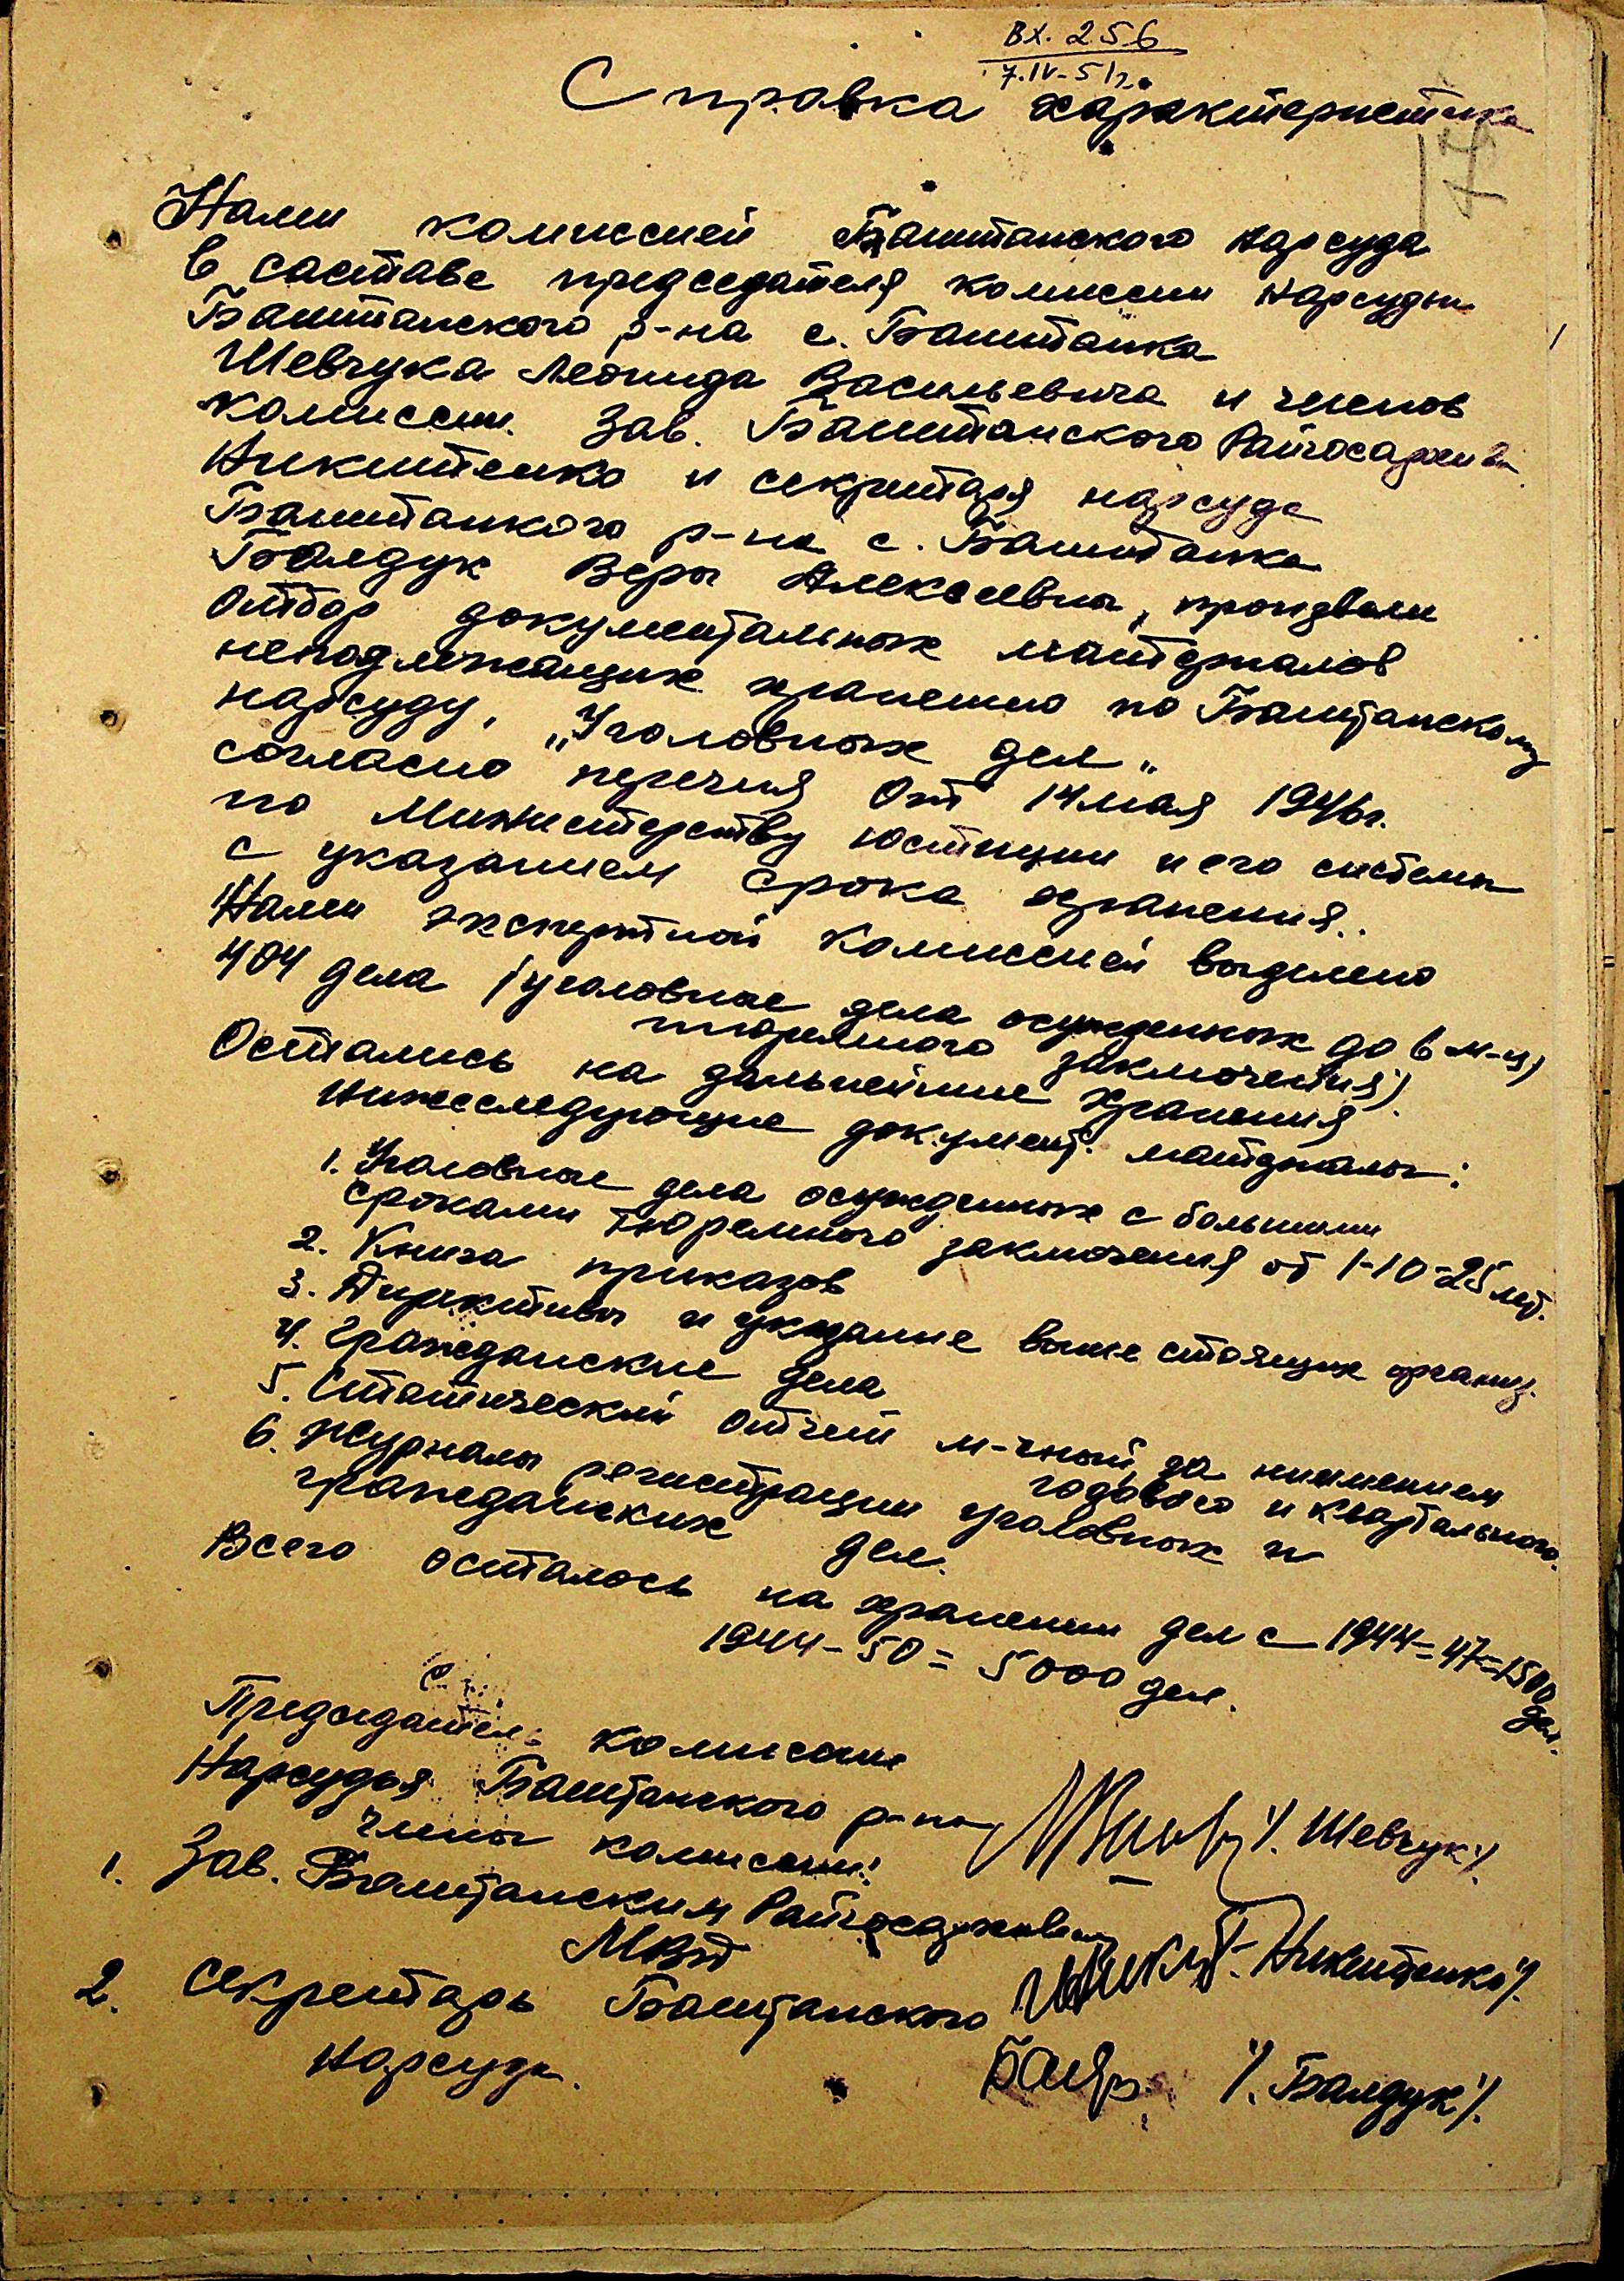 Вх. 256
7.IV-51г.
Справка характеристика
17
Нами комиссией Баштанского нарсуда
в саставе председателя комиссии нарсудьи
Баштанского р-на с. Баштанка
Шевчука Леонида Васильевича и членов
комиссии. Зав. Баштанского Райгосархива
Никитенко и секретаря нарсуда
Баштанкого р-на с. Баштанка
Балдук Веры Алексеевны, произвели
отбор документальных материалов
неподлежащих хранению по Баштанскому
нарсуду, „Уголовных дел„
согласно перечня от 14 мая 1946г.
по Министерству юстиции и его системы
с указанием срока хранения..
Нами экспертной комиссией выделено
404 дела /уголовные дела осужденных до 6 м-ц)
тюремного заключения).
Остались на дальнейшие хранения
нижеследующие документ. материалы:
1. Уголовные дела осужденных с большими
сроками тюремного заключения от 1-10-25 лет.
2. Книга приказов
3. Директивы и указание выше стоящих организ.
4. Гражданские дела
5. Статический отчет м-чный за ниимением
годового и квартального.
6. Журналы регистрации уголовных и
гражданских дел.
Всего осталось на хранении дел с 1944-47=1500
дел.
1944-50= 5000 дел.
Председатель комиссии
Нарсудья Баштанского р-на /. Шевчук/.
Члены комиссии:
1. Зав. Баштанским Райгосархивом
МВД Никитенко/.
2. Секретарь Баштанского
Нарсуда. /. Балдук/.